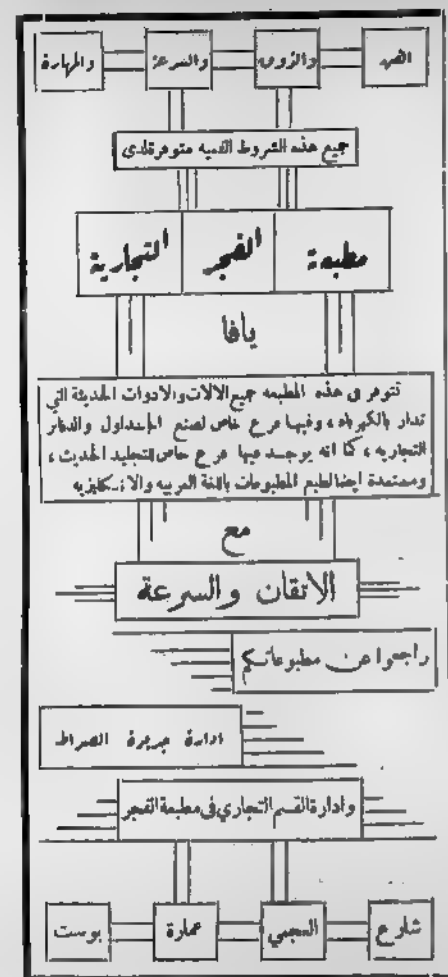 الفن والذوق والسرعة والمهارة
جميع هذه الشروط الفنيه متوفرة لدى
مطبعة الفجر التجارية
يافا
تتوفر في هذه المطبعه جميع الالات والادوات الحديثة التي
تدار بالكهرباء، وفيها فرع خاص لصنع الجداول والدفاتر
التجاريه، كما انه يوجد فيها فرع خاص للتجليد الحديث،
ومستعدة ايضا لطبع المطبوعات باللغة العربيه والانكليزيه
مع
الاتقان والسرعة
راجعوا عن مطبوعاتكم
ادارة جريدة الصراط
وادارة القسم التجاري في مطبعة الفجر
شارع العجمي عمارة بوست